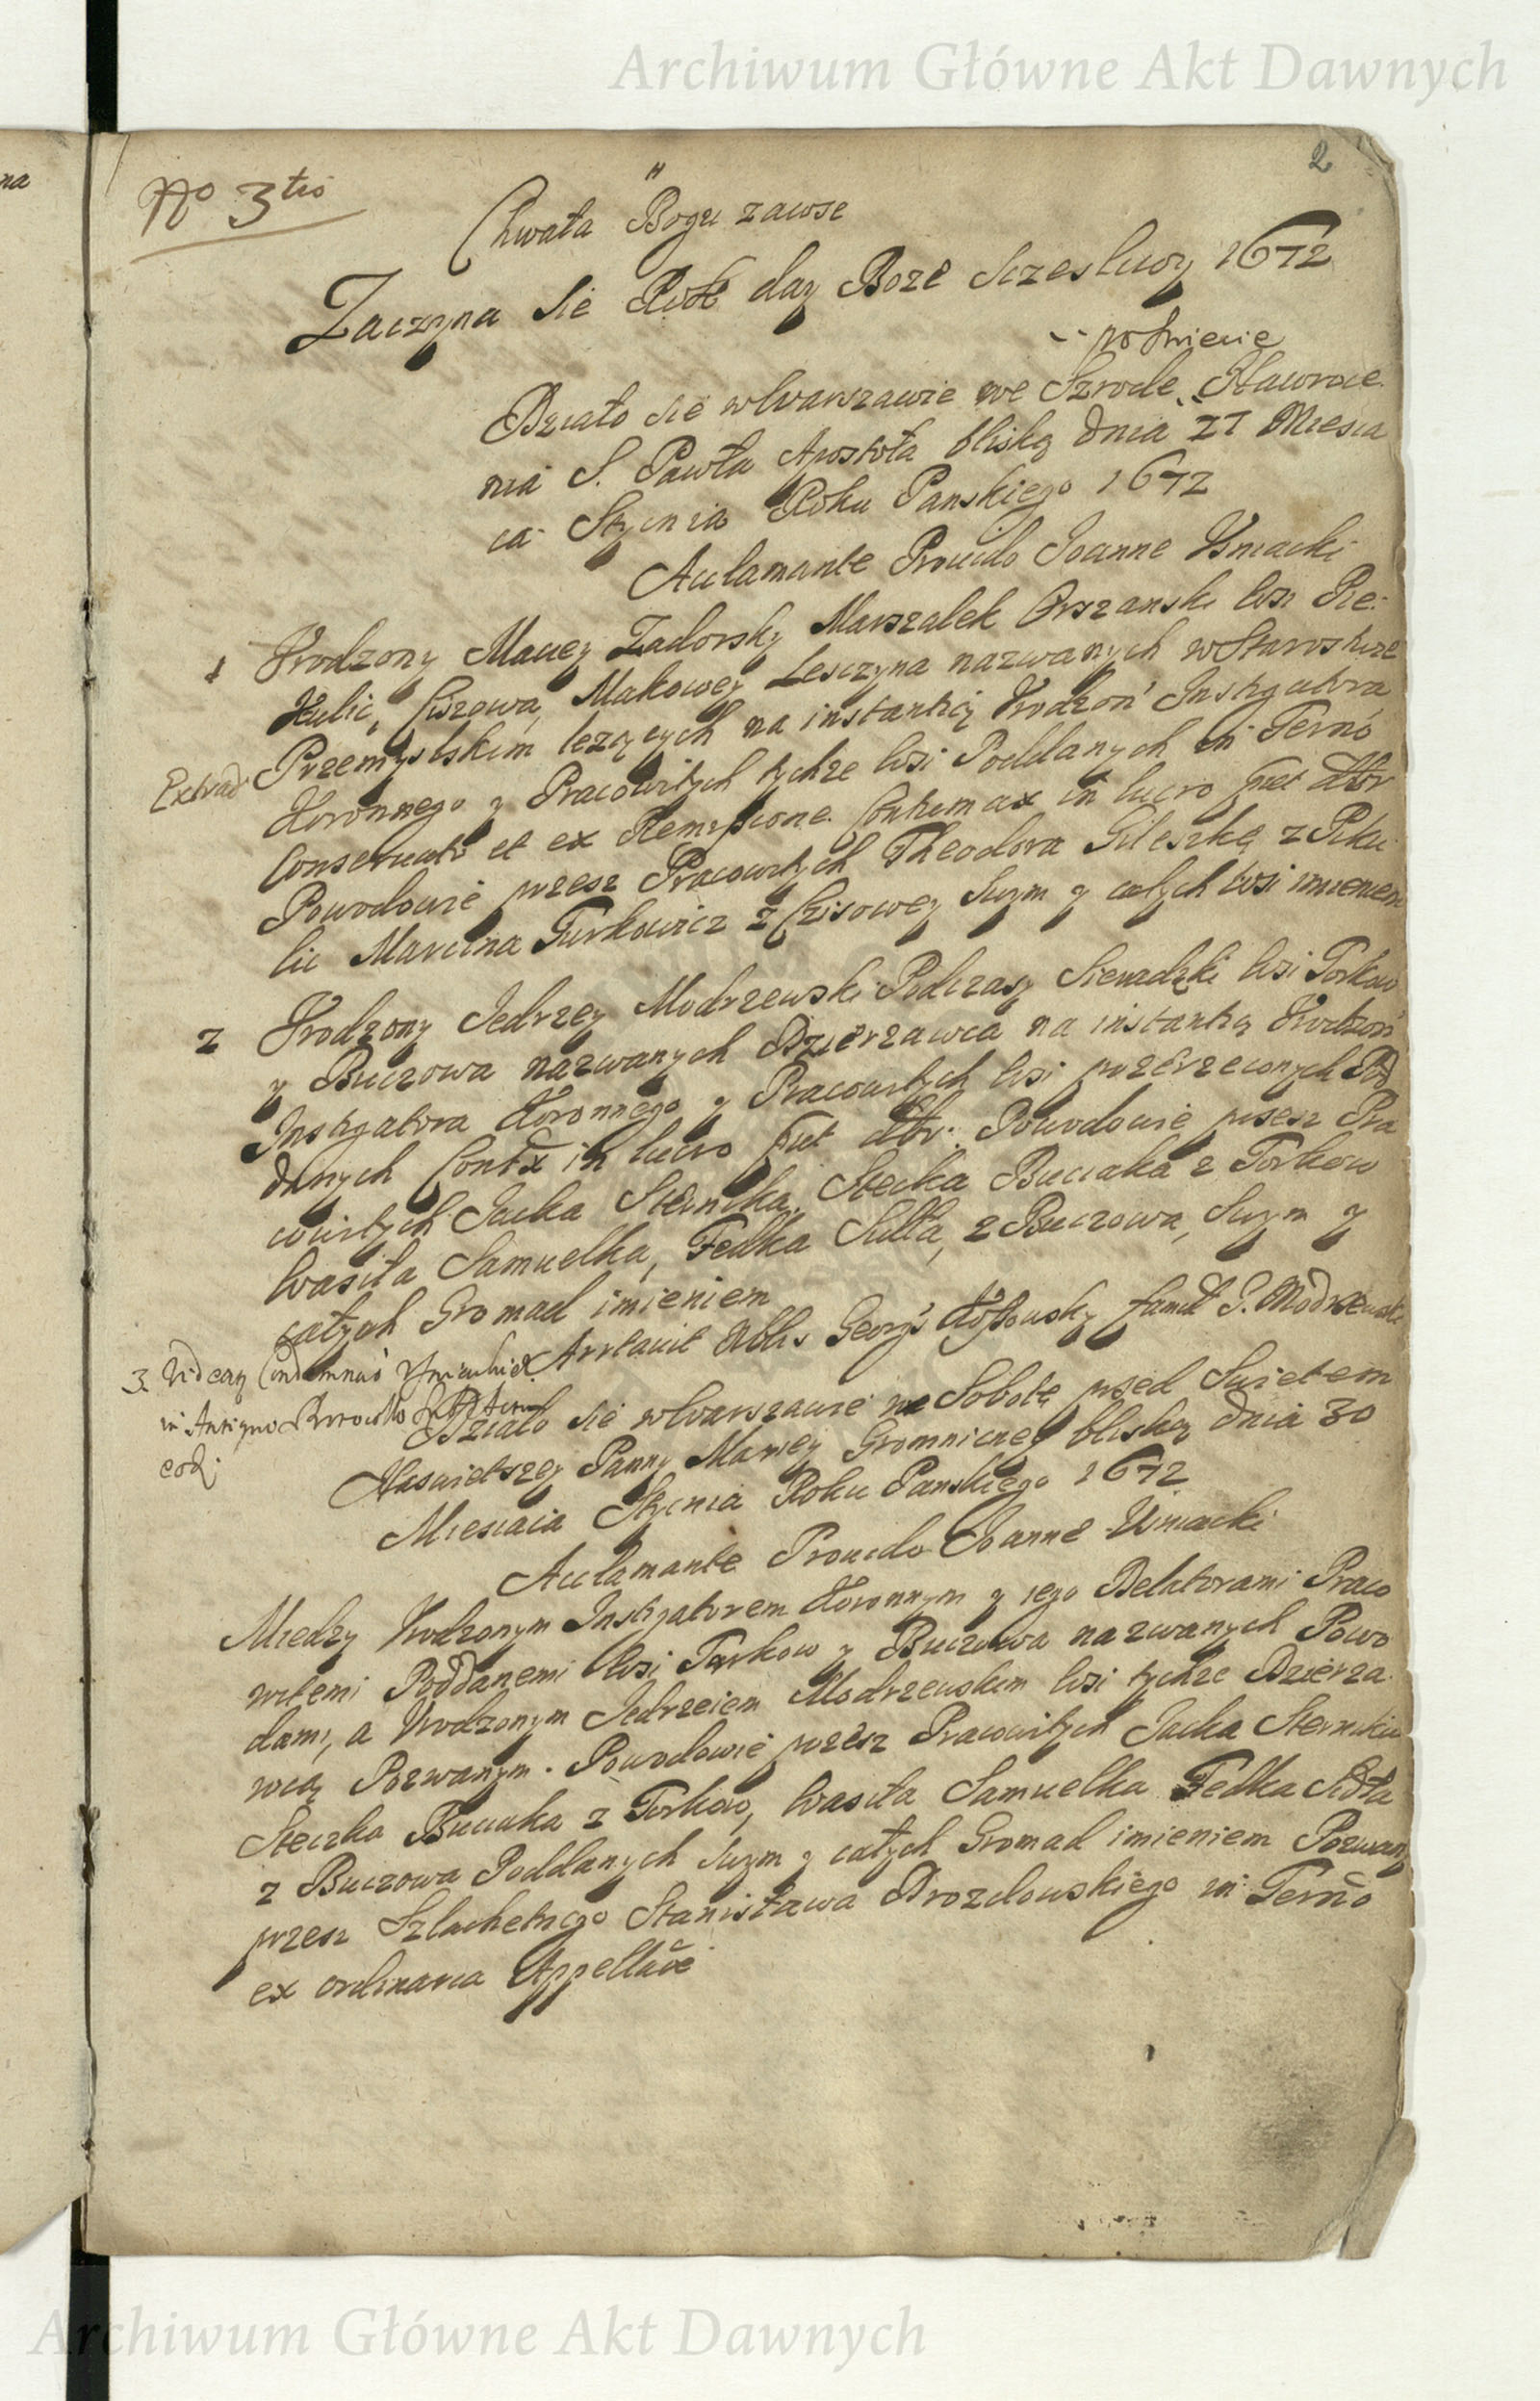 Archiwum Główne Akt Dawnych
2
na
No 3tio
Chwała Bogu zawse
Zaczyna sie Rok day Boze sczesliwy 1672
po swiecie
Działo sie w Warszawie we Szrode Nawroce
nia S. Pawła Apostoła bliską dnia 27 Miesia
ca Stycnia Roku Panskiego 1672
Acclamante Prouido Joanne Usniacki
1 Vrodzony Maciey Zadorsky Marszałek Orszanski wsi Pie
kulic, Ciszowa, Makowey Lesczyna nazwanych w Starostwie
Extrad Przemyslskim lezących na instantią Vrodzon Instigatora
Koronnego y Pracowitych tychze wsi Poddanych in Termo
Conseruato et ex Remissione Contumax in lucro
Powodowie przesz Pracowitych Theodora Gileszkę z Piku
lic Marcina Turkowicz z Czisowey swym y całych wsi imieniem
2 Vrodzony Jedrzey Modrzewski Podczasy Sieradzki wsi Torkow
y Buczowa nazwanych Dzierzawca na instantią Vrodzon
Instigatora Koronnego y Pracowitych wsi przerzeconych Pod
danych Contx in lucro Powodowie przesz Pra
cowitych Jacka Sternika, Stecka Buciaka z Torkow
Wasiła Samuelka, Fedka Sidła, z Buczowa, swym y
całych Gromad imieniem
Arrestauit Nblis Georg famul P. Modrzewski
3. Videaq Condemnas
in Antiquo
eod.
Działo sie w Warszawie we Sobotę przed Swietem
Naswietszey Panny Mariey Gromnicney bliską dnia 30
Miesiaca Stycnia Roku Panskiego 1672
Acclamante Prouido Joanne Usniacki
Miedzy Vrodzonym Instigatorem Koronnym y iego Delatorami Praco
witemi Poddanemi wsi Torkow y Buczowa nazwanych Powo
dami, a Vrodzonym Jedrzeiem Modrzewskim wsi tychze Dzierza
wcą Pozwanym. Powodowie przesz Pracowitych Jacka Sternika
Steczka Buciaka z Torkow, Wasiła Samuelka Fedka Sidła
z Buczowa Poddanych swym y całych Gromad imieniem Pozwany
przesz Szlachetnego Stanisława Drozdowskiego in Termo
ex ordinaria Appellãe
Archiwum Główne Akt Dawnych